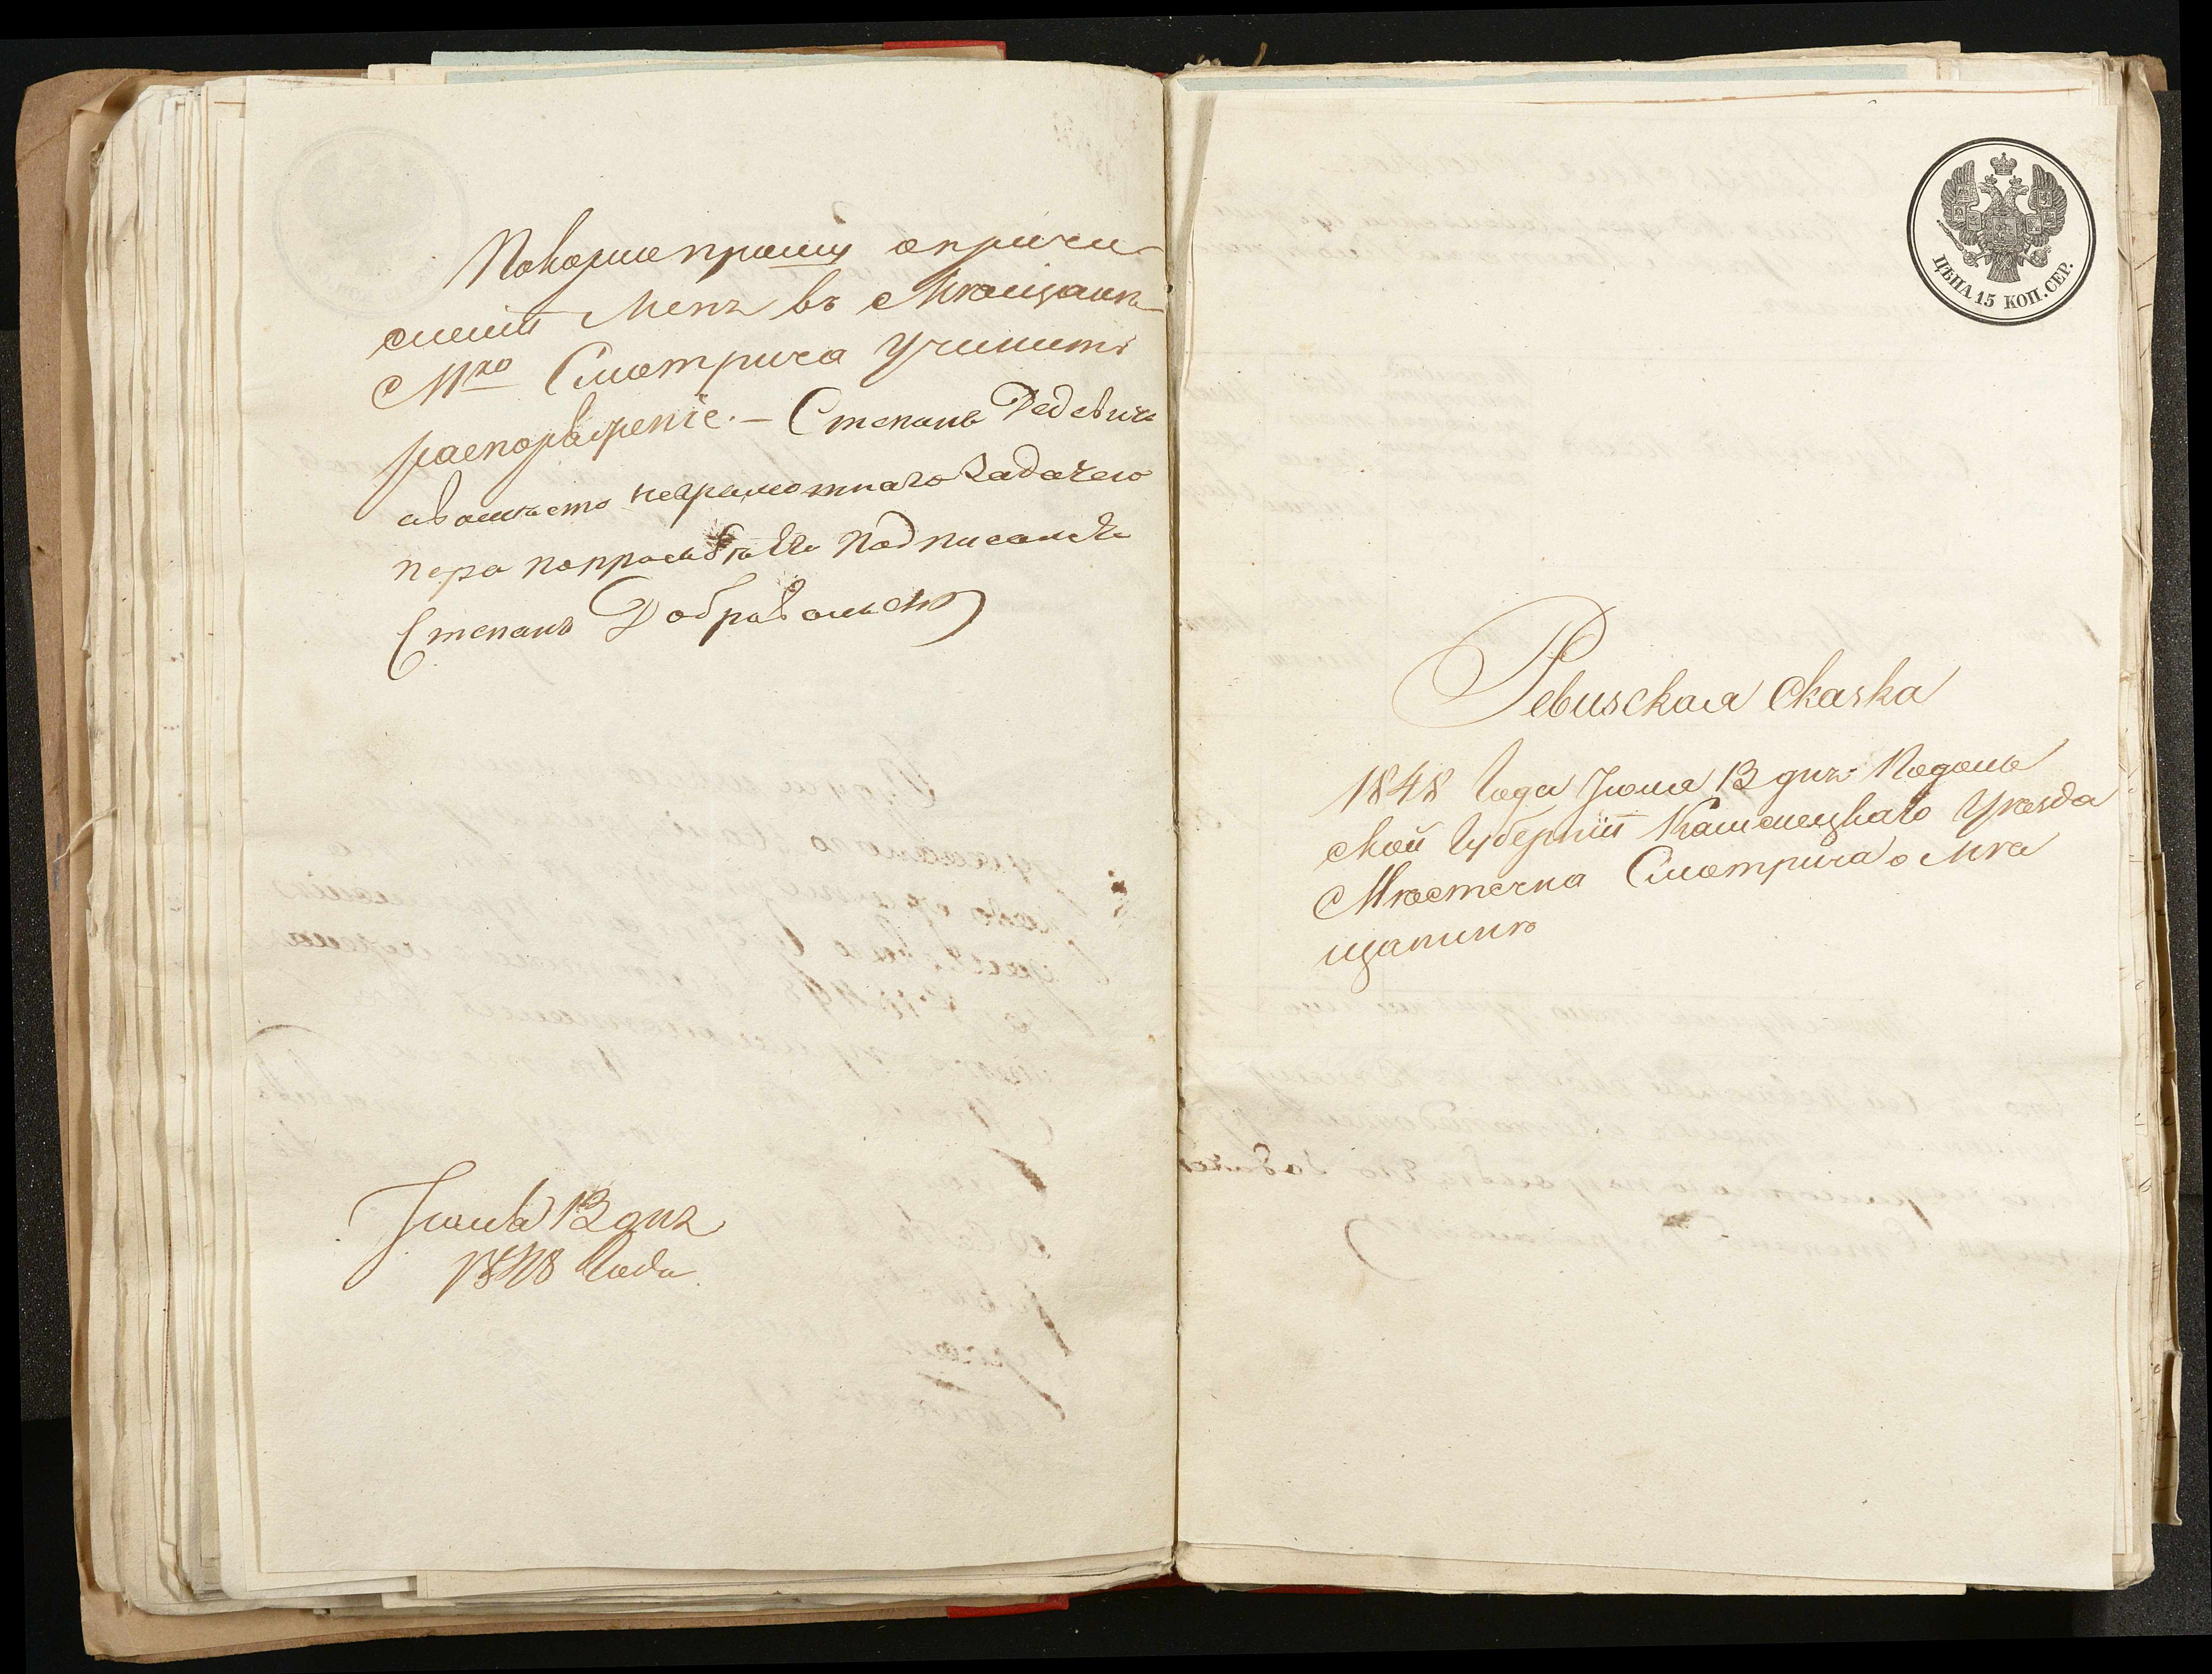 Покорнепрошу опричи
сленіи Меня въ Мѣщанѣ
Мко Смотрича Учинить
распоряженіе. — Степанъ Дедевичъ
авомѣсто неграмотнаго Задачею
пера попросьбѣ Его Подписалсь
Степанъ Добравольскій
Іюня 13 дня
1848 Года
ЦѢНА 15 КОП. СЕР.
Ревизская Сказка
1848 Года Іюня 13 дня Подоль
ской Губерніи Каменецкаго Уѣзда
Мѣстечка Смотрича о Мѣ
щанинѣ